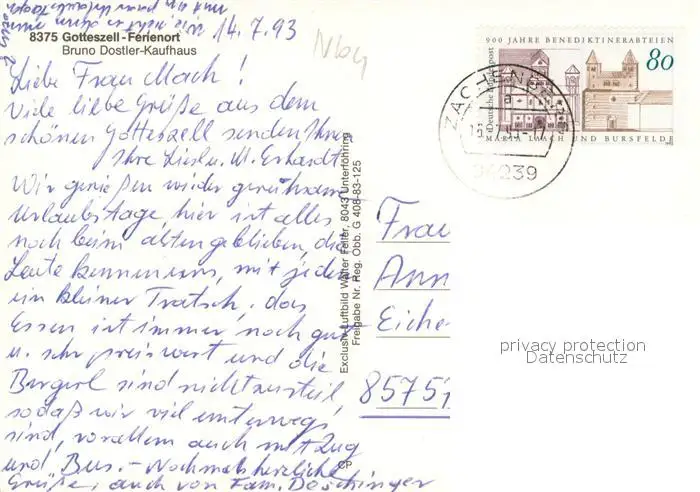 14.7.93
8375 Gotteszell - Ferienort
Bruno Dostler-Kaufhaus
Nbg
Liebe Frau Mach!
Viele liebe Grüße aus dem
schönen Gotteszell senden Ihnen
Ihre Liesl u. W. Erhardt
Wir genießen wieder geruhsame
Urlaubstage, hier ist alles
noch beim alten geblieben, die
Leute kennen uns, mit jedem
ein kleiner Tratsch, das
Essen ist immer noch gut
u. sehr preiswert und die
Bergerl sind nicht zu steil,
sodaß wir viel unterwegs
sind, vor allem auch mit Zug
und Bus. - Nochmals herzliche
Grüße, auch von Fam. Döschinger
Exclusiv-Luftbild Walter Feller, 8043 Unterföhring
Freigabe Nr. Reg. Obb. G 408-83-125
CP
900 JAHRE BENEDIKTINERABTEIEN
80
Deutsche Bundespost
MARIA LAACH UND BURSFELDE
ZACHENBERG
a
94239
Frau
Ann
Eiche
85757
privacy protection
Datenschutz